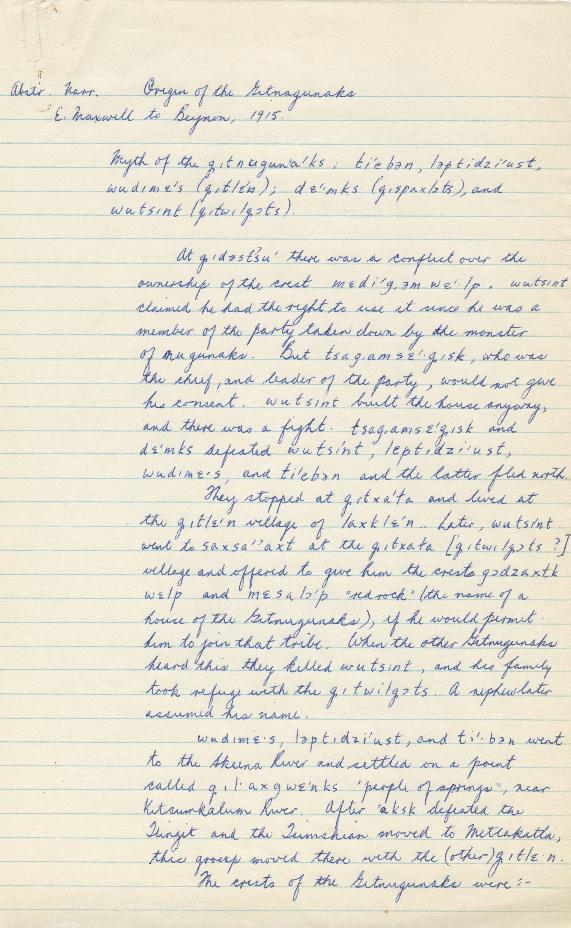 Abstr. Narr. Origin of the Gitnagunaks
E. Maxwell to Beynon, 1915.
Myth of the g̣ıtnugunaˈks: tiˈɛbən, ləptidziˈust,
wudimɛˈs (g̣ıtlɛˈn); dɛˈmks (g̣ıspaxlɔts), and
wutsint (g̣ıtwılgɔts).
At there was a conflict over the
ownership of the crest mɛdiˈg̣əm wɛˈlp. wutsint
claimed he had the right to use it since he was a
member of the party taken down by the monster
of nugunaks. But tsag̣amsɛˈg̣ısk, who was
the chief, and leader of the party, would not give
his consent. wutsint built the house anyway,
and there was a fight. tsag̣amsɛˈg̣ısk and
dɛˈmks defeated wutsiˈnt, leptidziˈust,
wudimɛˈs, and tiˈɛbən and the latter fled north.
They stopped at g̣ıtxaˈɫa and lived at
the g̣ıtlɛˈn village of laxklɛˈn. Later, wutsint
went to saxsaˈˈaxt at the g̣ıtxaɫa [g̣ıtwılgɔts ?]
village and offered to give him the crests gədzaxtk
wɛlp and mɛsalɔˈp "red rock" (the name of a
house of the Gitnugunaks), if he would permit
him to join that tribe. When the other Gitnugunaks
heard this they killed wutsint, and his family
took refuge with the g̣ıtwılgɔts. A nephew later
assumed his name.
wudimɛˈs, ləptidziˈust, and tiˈˈbən went
to the Skeena River and settled on a point
called g̣ılˈaxgwɛˈnks "people of springs", near
Kitsumkalum River. After ˈaksk defeated the
Tlingit and the Tsimshian moved to Metlakatla,
this group moved there with the (other) g̣ıtlɛˈn.
The crests of the Gitnugunaks were :-